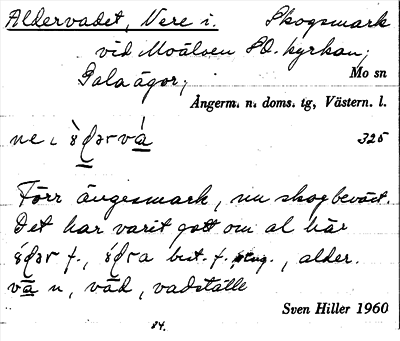 Aldervadet, Nere i. Skogsmark
vid Moälven SO. kyrkan;
Gala ägor; Mo sn
Ångerm. n. doms. tg, Västern. l.
ne i 325
Förr ängesmark, nu skogbeväxt.
Det har varit gott om al här
f., best. f. sing., alder.
vā n, vād, vadställe
Sven Hiller 1960
84.